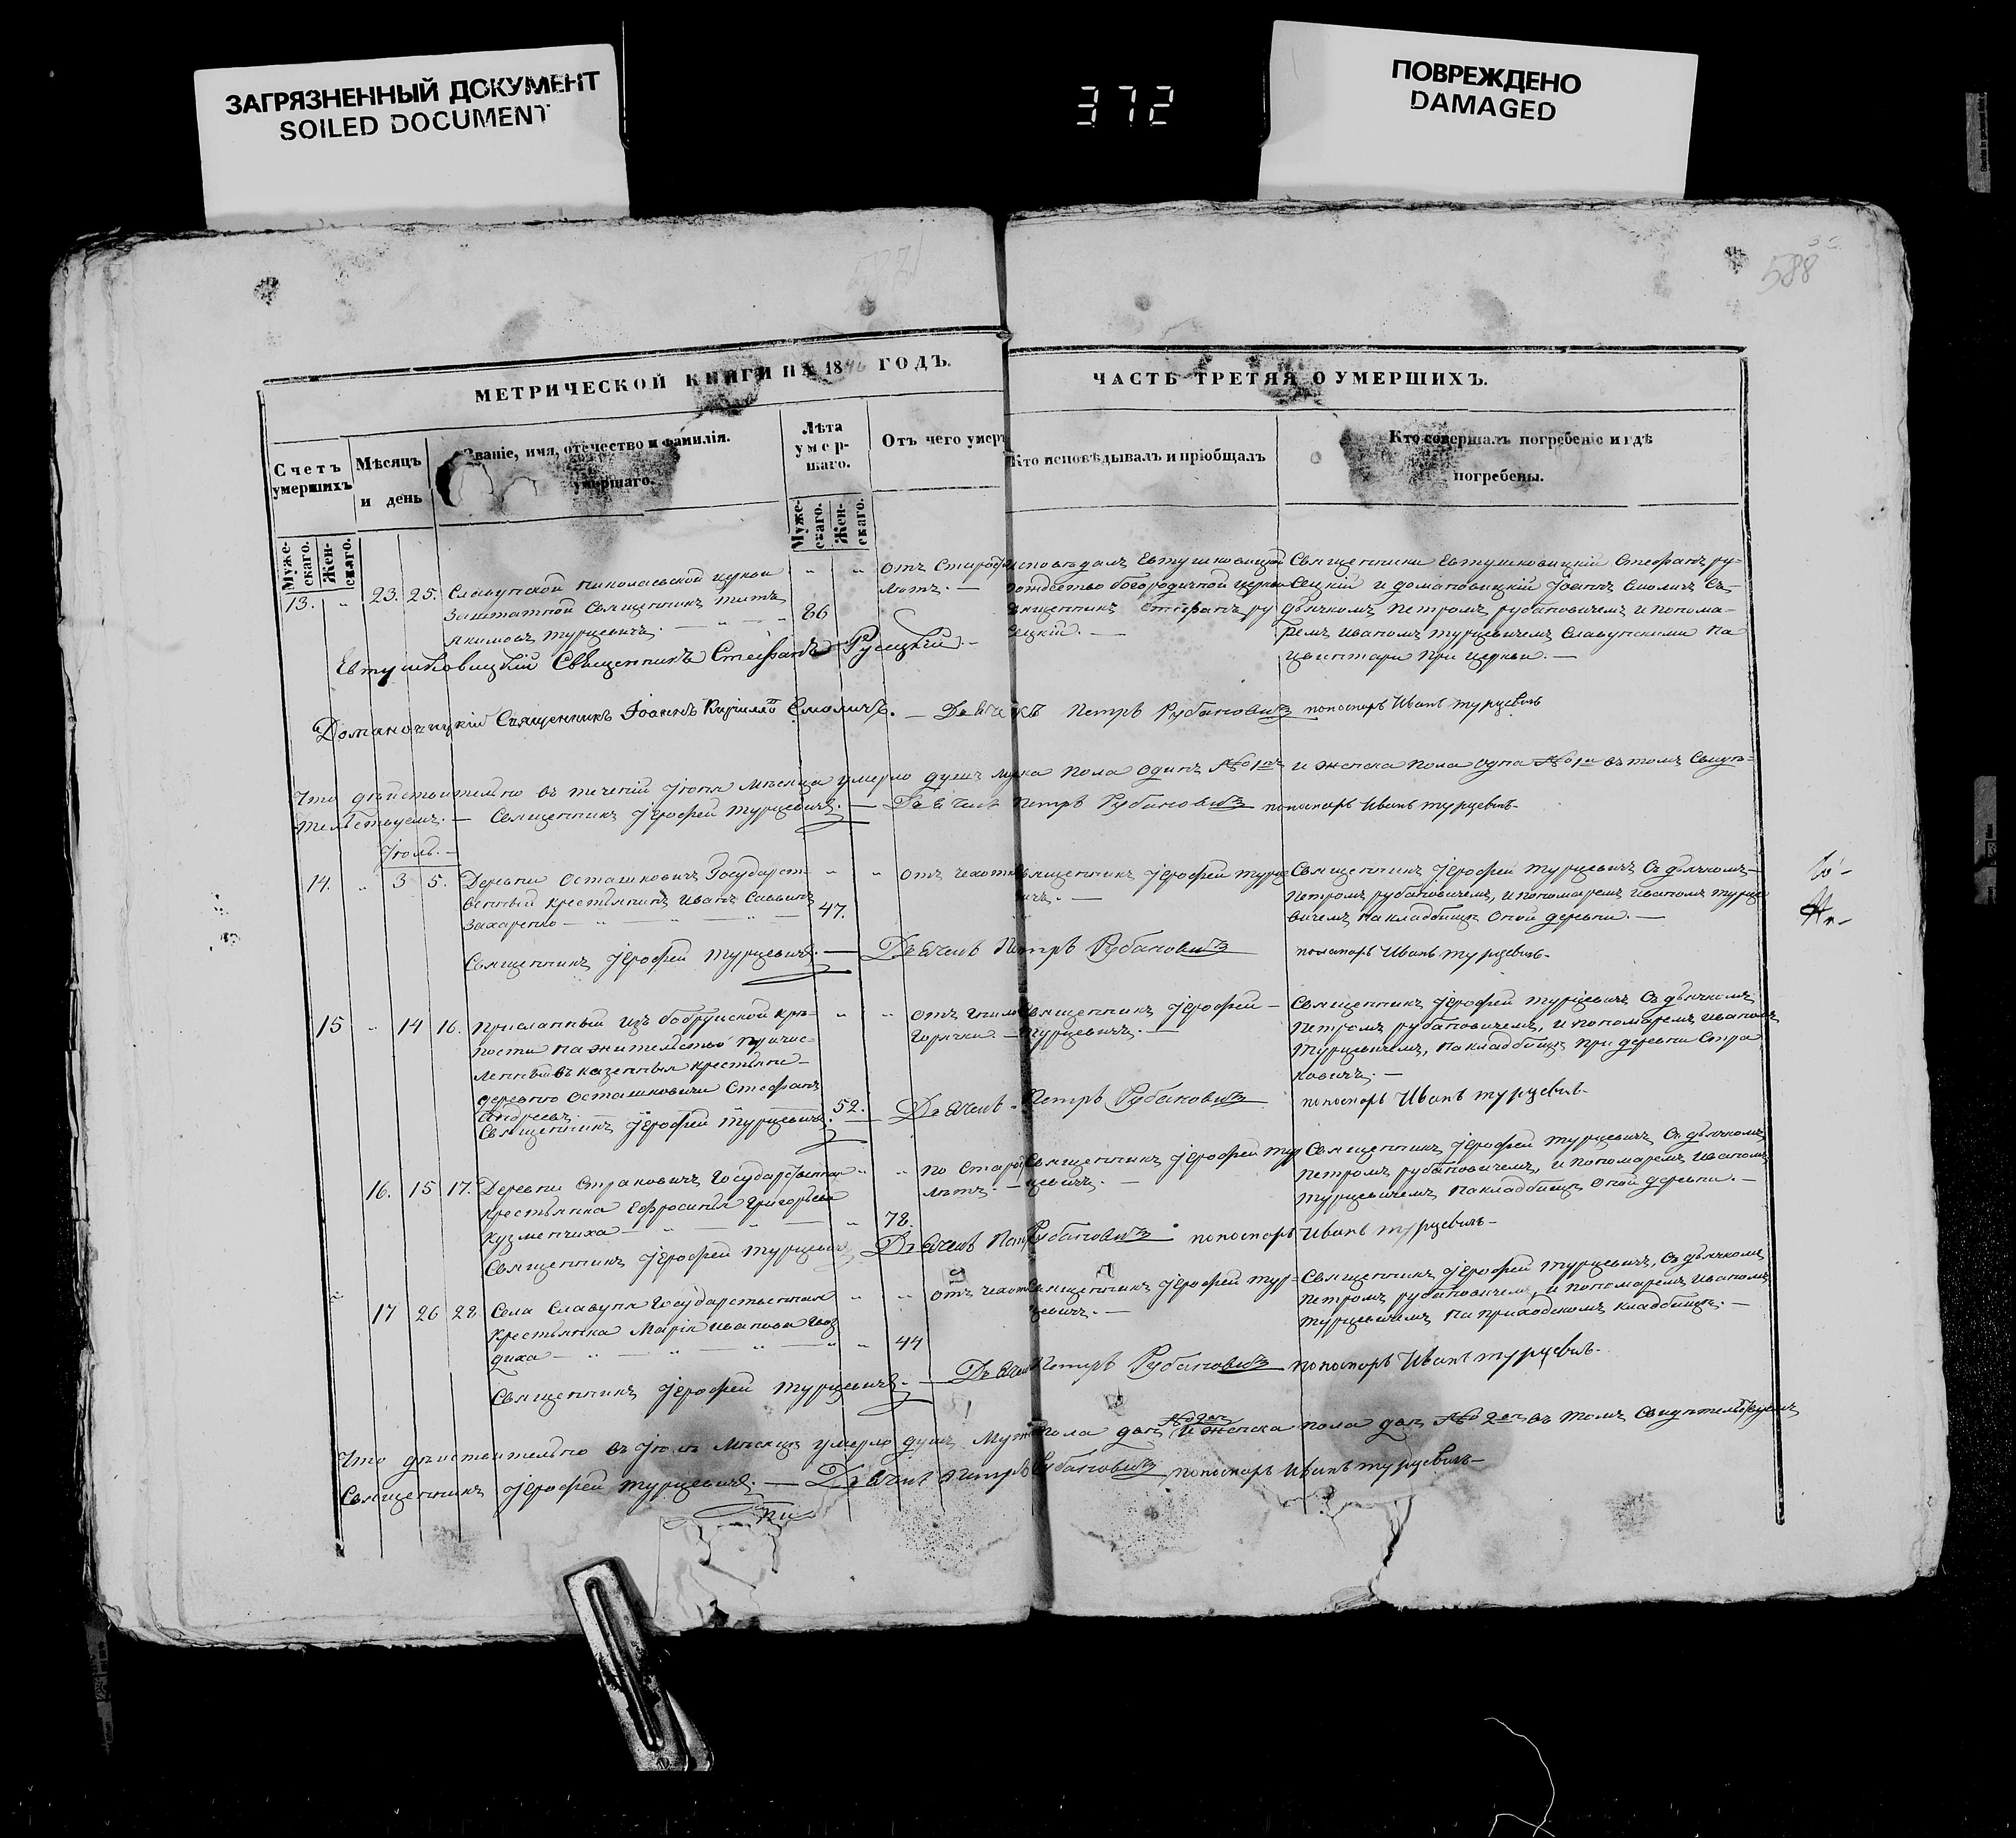 ЗАГРЯЗНЕННЫЙ ДОКУМЕНТ
SOILED DOCUMENT
372
ПОВРЕЖДЕНО
DAMAGED
588
МЕТРИЧЕСКОЙ КНИГИ НА 1846 ГОДЪ.
ЧАСТЬ ТРЕТЯЯ О УМЕРШИХЪ.
Счетъ умершихъ
Мѣсяцъ и день
Званіе, имя, отечество и фамилія умершаго.
Лѣта умершаго.
Отъ чего умеръ
Кто исповѣдывалъ и пріобщалъ
Кто совершалъ погребеніе и гдѣ погребены.
Мужескаго. Женскаго.
Мужескаго. Женскаго.
13. " 23. 25.
Славунской Николаевской церкви
Заштатной Священникъ Титъ
Якимовъ Турцевичъ. 86
отъ Старости
лѣтъ. —
исповѣдалъ Евтушковицкой
рождество богородичной церкви
Священникъ Стефанъ Ру
сецкій. —
Священники Евтушковицкій Стефанъ Ру-
сецкій и домановицкій Іоаннъ Смоличъ Съ
дьячкомъ Петромъ рубановичемъ и понома-
ремъ Иваномъ Турцевичемъ Славунскими на
цвинтари при церкви. —
Евтушковицкій Священникъ Стефанъ Русецкій. —
Домановицкій Священникъ Іоаннъ Смоличъ. — Дьячкъ Петръ Рубановичъ пономаръ Иванъ Турцевичъ
Что дѣйствительно въ теченіи Іюня Мѣсяца умерло душъ мужска пола одинъ № 1 и женска пола одна № 1 въ томъ Свидѣ-
тельствуемъ. — Священникъ Іерофей Турцевичъ. — Дьячекъ Петръ Рубановичъ пономаръ Иванъ Турцевичъ.
Іюль. —
14. " 3 5.
Деревни Осташковичъ Государст-
венный крестьянинъ Иванъ Саввинъ
Захаренко — 47.
отъ чахотки
Священникъ Іерофей Турце
вичъ. —
Священникъ Іерофей Турцевичъ Съ дьячкомъ
Петромъ рубановичемъ, и пономаремъ Иваномъ Турце
вичемъ на кладбищѣ Оной деревни. —
Священникъ Іерофей Турцевичъ. — Дьячекъ Петръ Рубановичъ пономаръ Иванъ Турцевичъ.
15 " 14 16.
Присланный изъ бобруйской крѣ-
пости на жительство причис-
ленный въ казенныя крестьяне
деревню Осташковичи Стефанъ
Андреевъ. 52.
отъ гнилой
горячки. —
Священникъ Іерофей —
Турцевичъ. —
Священникъ Іерофей Турцевичъ Съ дьячкомъ
Петромъ рубановичемъ, и пономаремъ Иваномъ
Турцевичемъ, на кладбищѣ при деревни Стра
ковичъ. —
Священникъ Іерофей Турцевичъ. — Дьячекъ Петръ Рубановичъ пономаръ Иванъ Турцевичъ.
16. 15 17.
Деревни Страковичъ Государственная
крестьянка Ефросинія Григорьева
Кузменчиха — 78.
по Старости
лѣтъ. —
Священникъ Іерофей Тур
цевичъ. —
Священникъ Іерофей Турцевичъ Съ дьячкомъ
Петромъ рубановичемъ, и пономаремъ Иваномъ
Турцевичемъ на кладбищѣ Оной деревни. —
Священникъ Іерофей Турцевичъ Дьячекъ Петръ Рубановичъ пономаръ Иванъ Турцевичъ.
17 26 28
Села Славуня Государственная
крестьянка Марія Иванова
44
отъ чахотки
Священникъ Іерофей Тур-
цевичъ. —
Священникъ Іерофей Турцевичъ, Съ дьячкомъ
Петромъ рубановичемъ, и пономаремъ Иваномъ
Турцевичемъ на приходскомъ кладбищѣ. —
Священникъ Іерофей Турцевичъ. — Дьячекъ Петръ Рубановичъ пономаръ Иванъ Турцевичъ.
Что дѣйствительно въ Іюлѣ Мѣсяцѣ умерло душъ Муж пола двѣ № 2 и женска пола двѣ № 2 въ томъ Свидѣтельствуемъ
Священникъ Іерофей Турцевичъ. — Дьячекъ Петръ Рубановичъ пономаръ Иванъ Турцевичъ